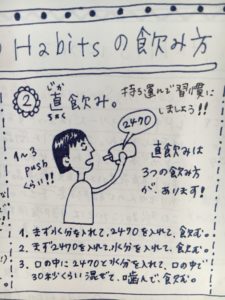 Habits の飲み方
② 直飲み。
じか
ちょく
持ち運んで習慣に
しましょう!!
2470
1〜3
push
くらい!!
直飲みは
3つの飲み方
が、あります!
1. まず水分を入れて、2470を入れて、飲む。
2. まず2470を入れて、水分を入れて、飲む。
3. 口の中に2470と水分を入れて、口の中で
30秒くらい混ぜて、噛んで飲む。